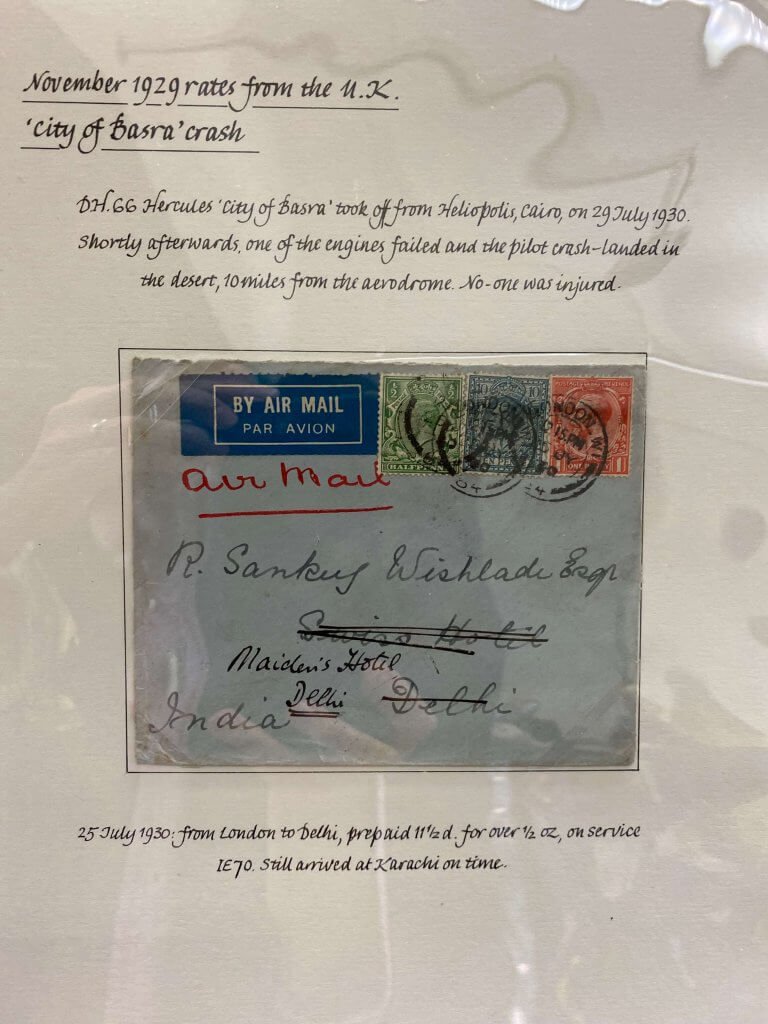 November 1929 rates from the U.K.
'City of Basra' crash
DH.66 Hercules 'City of Basra' took off from Heliopolis, Cairo, on 29 July 1930.
Shortly afterwards, one of the engines failed and the pilot crash-landed in
the desert, 10 miles from the aerodrome. No-one was injured.
BY AIR MAIL
PAR AVION
HALFPENNY
POSTAGE REVENUE
10 10
1
LONDON. W.1
15 PM
Air Mail
R. Sankey Wishlade Esqr
Swiss Hotel
Maiden's Hotel
Delhi Delhi
India
25 July 1930: from London to Delhi, prepaid 11½d. for over ½ oz, on service
IE70. Still arrived at Karachi on time.